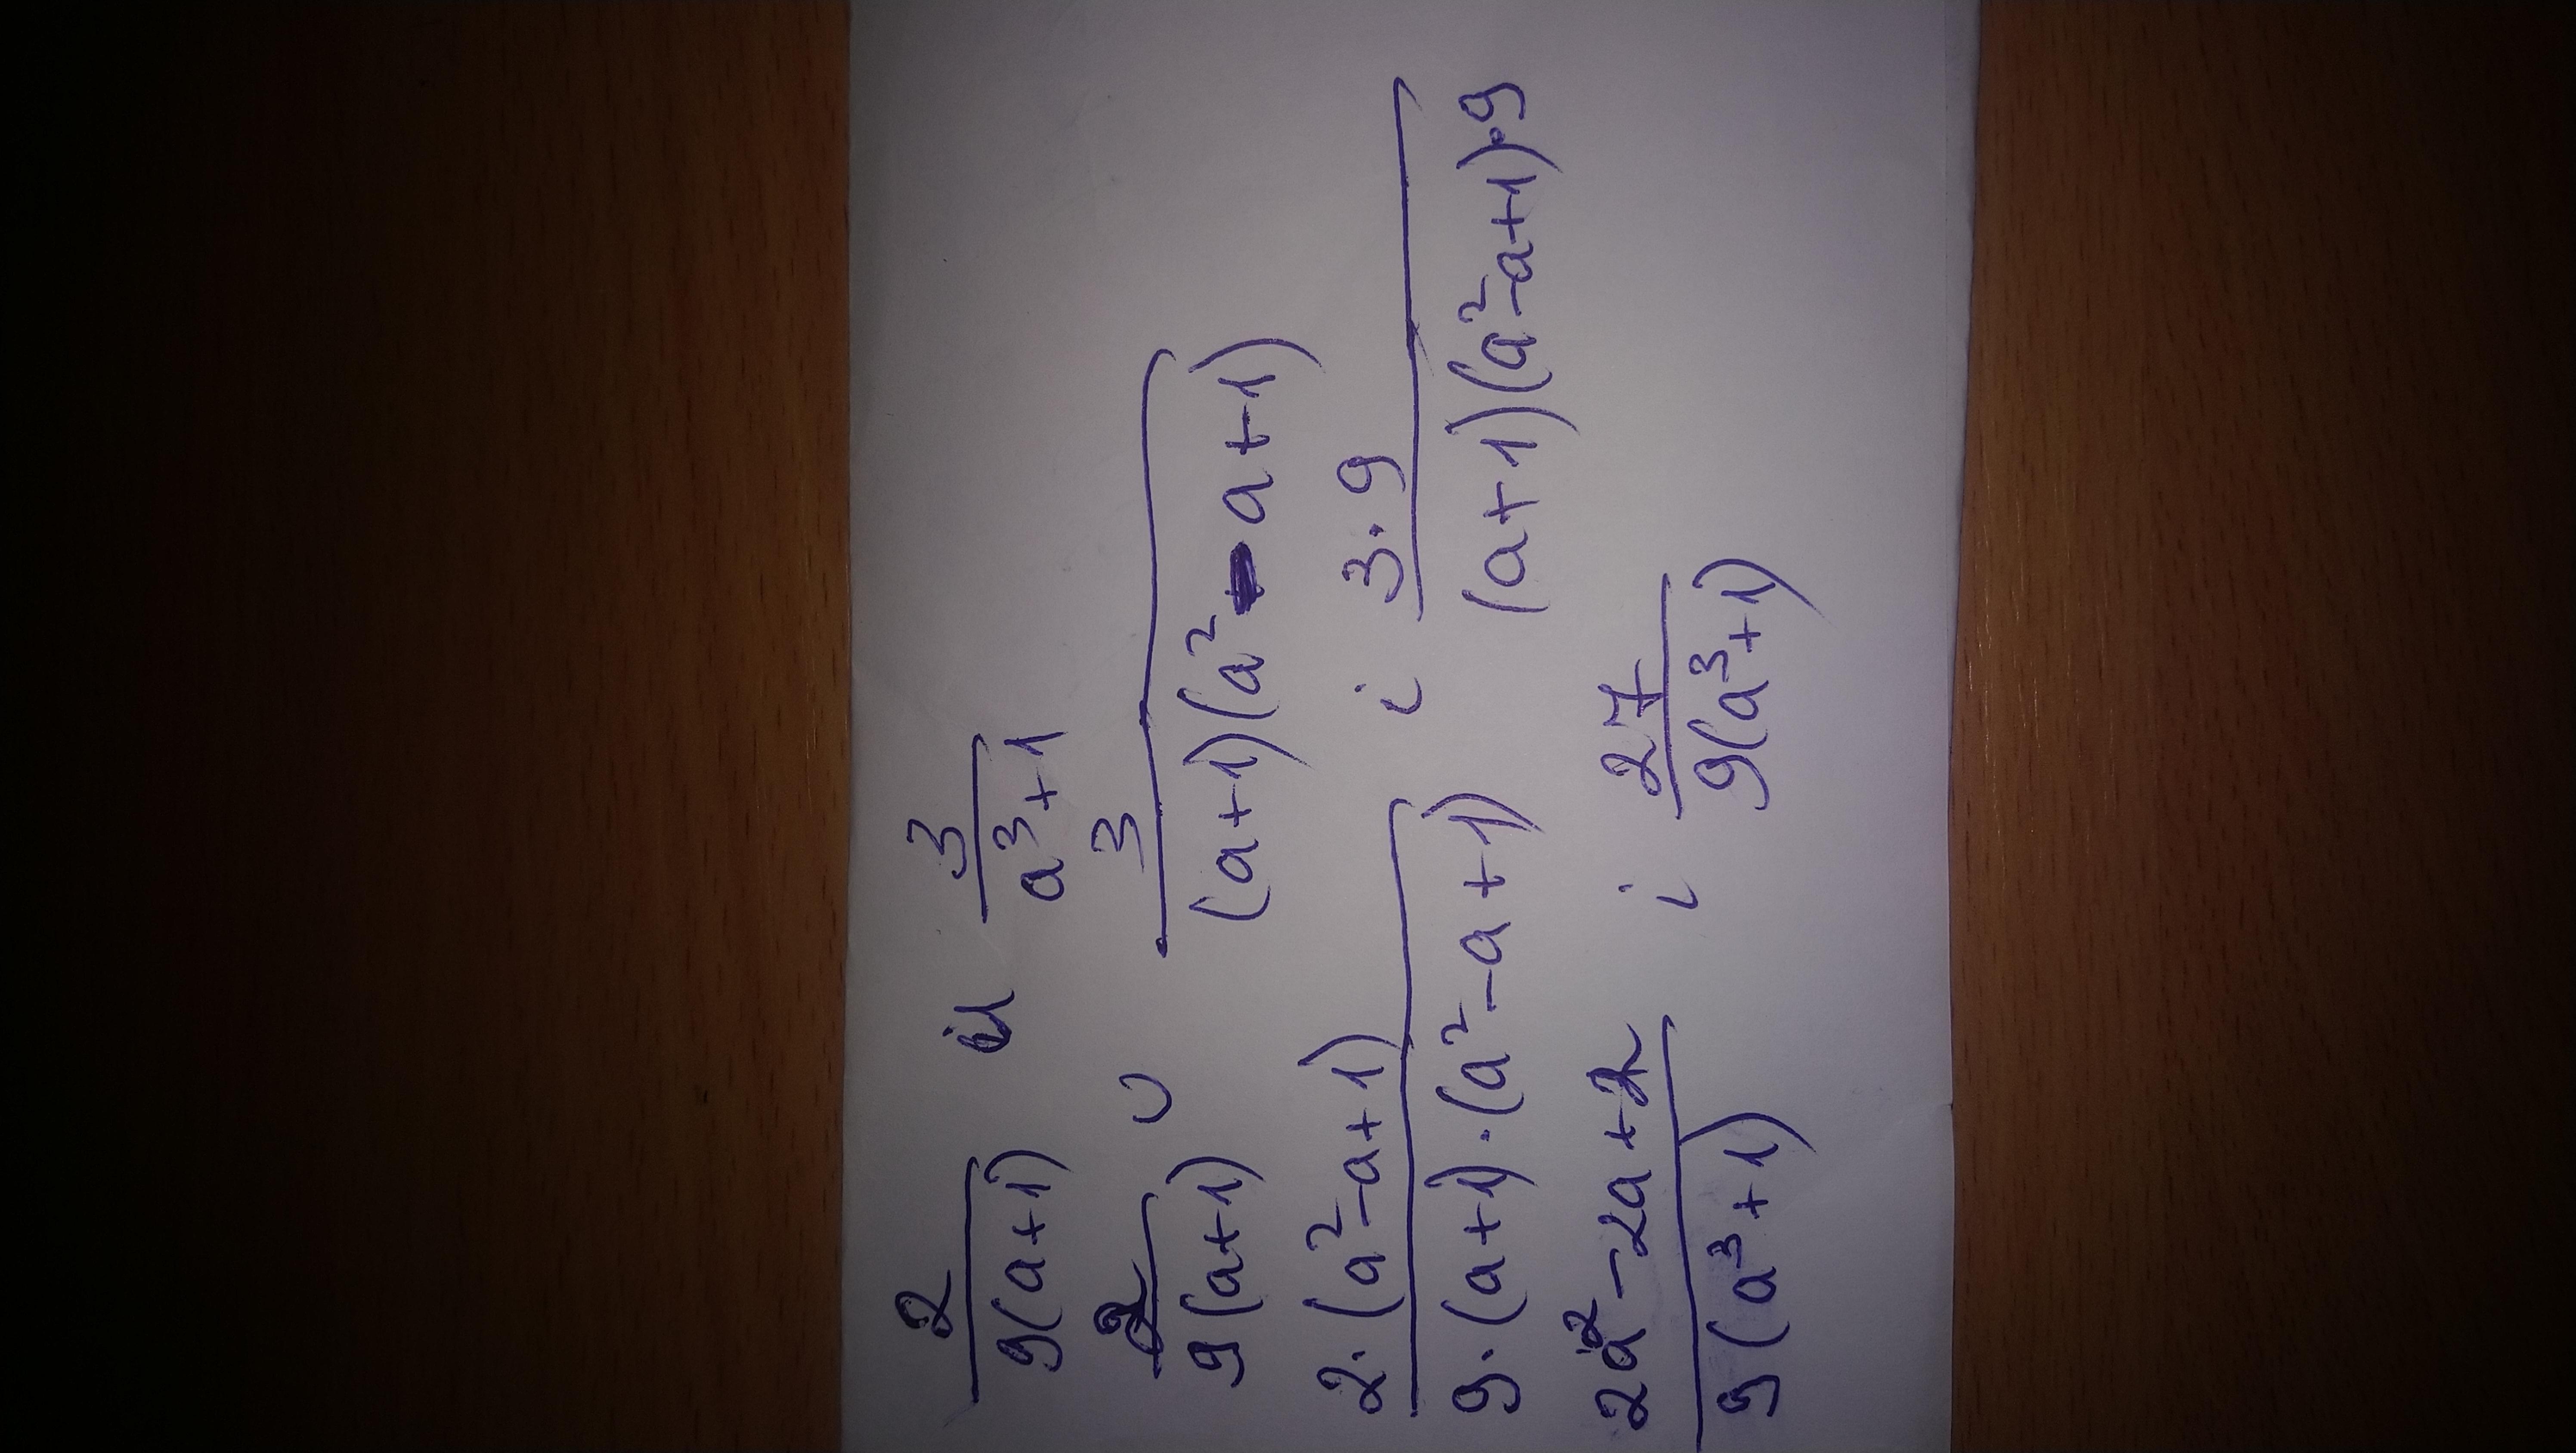 2/(9(a+1)) и 3/(a³+1)
2/(9(a+1)) и 3/((a+1)(a²-a+1))
2·(a²-a+1)/(9·(a+1)·(a²-a+1)) i 3·9/((a+1)(a²-a+1)·9)
2a²-2a+2/(9(a³+1)) i 27/(9(a³+1))